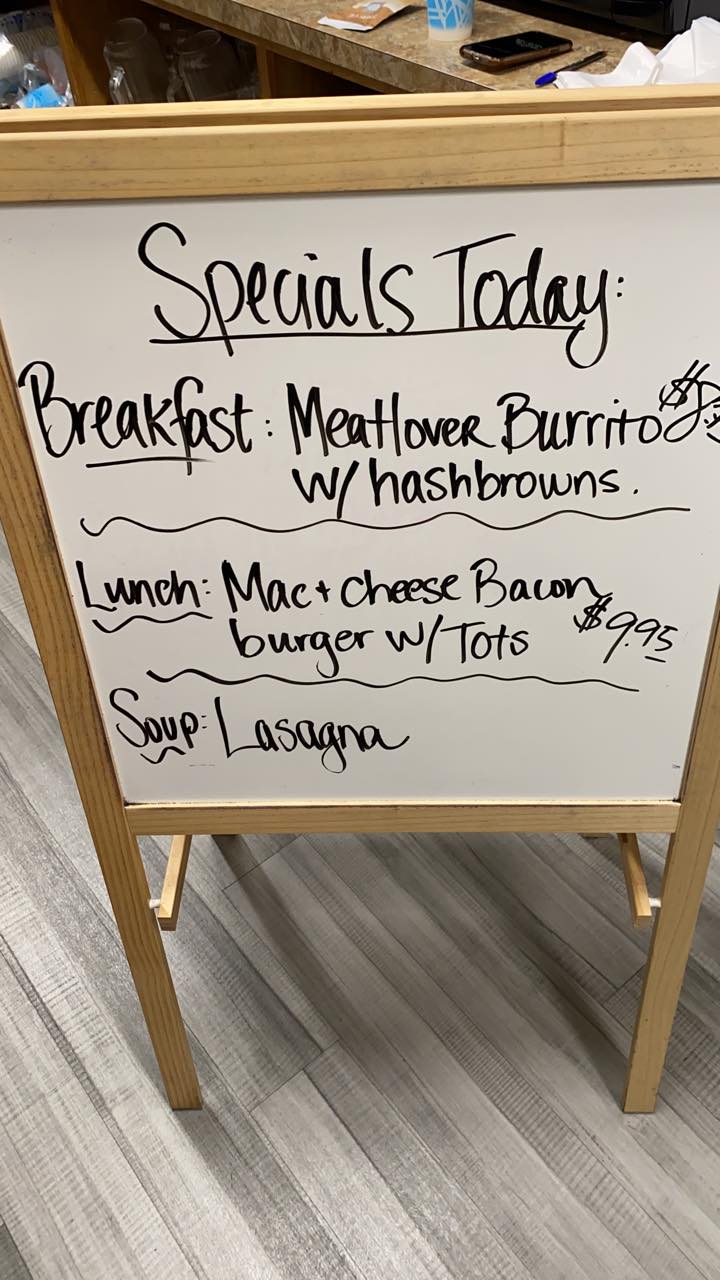 Specials Today:
Breakfast: Meatlover Burrito
w/ hashbrowns.
Lunch: Mac + cheese Bacon
burger w/ Tots $9.95
Soup: Lasagna